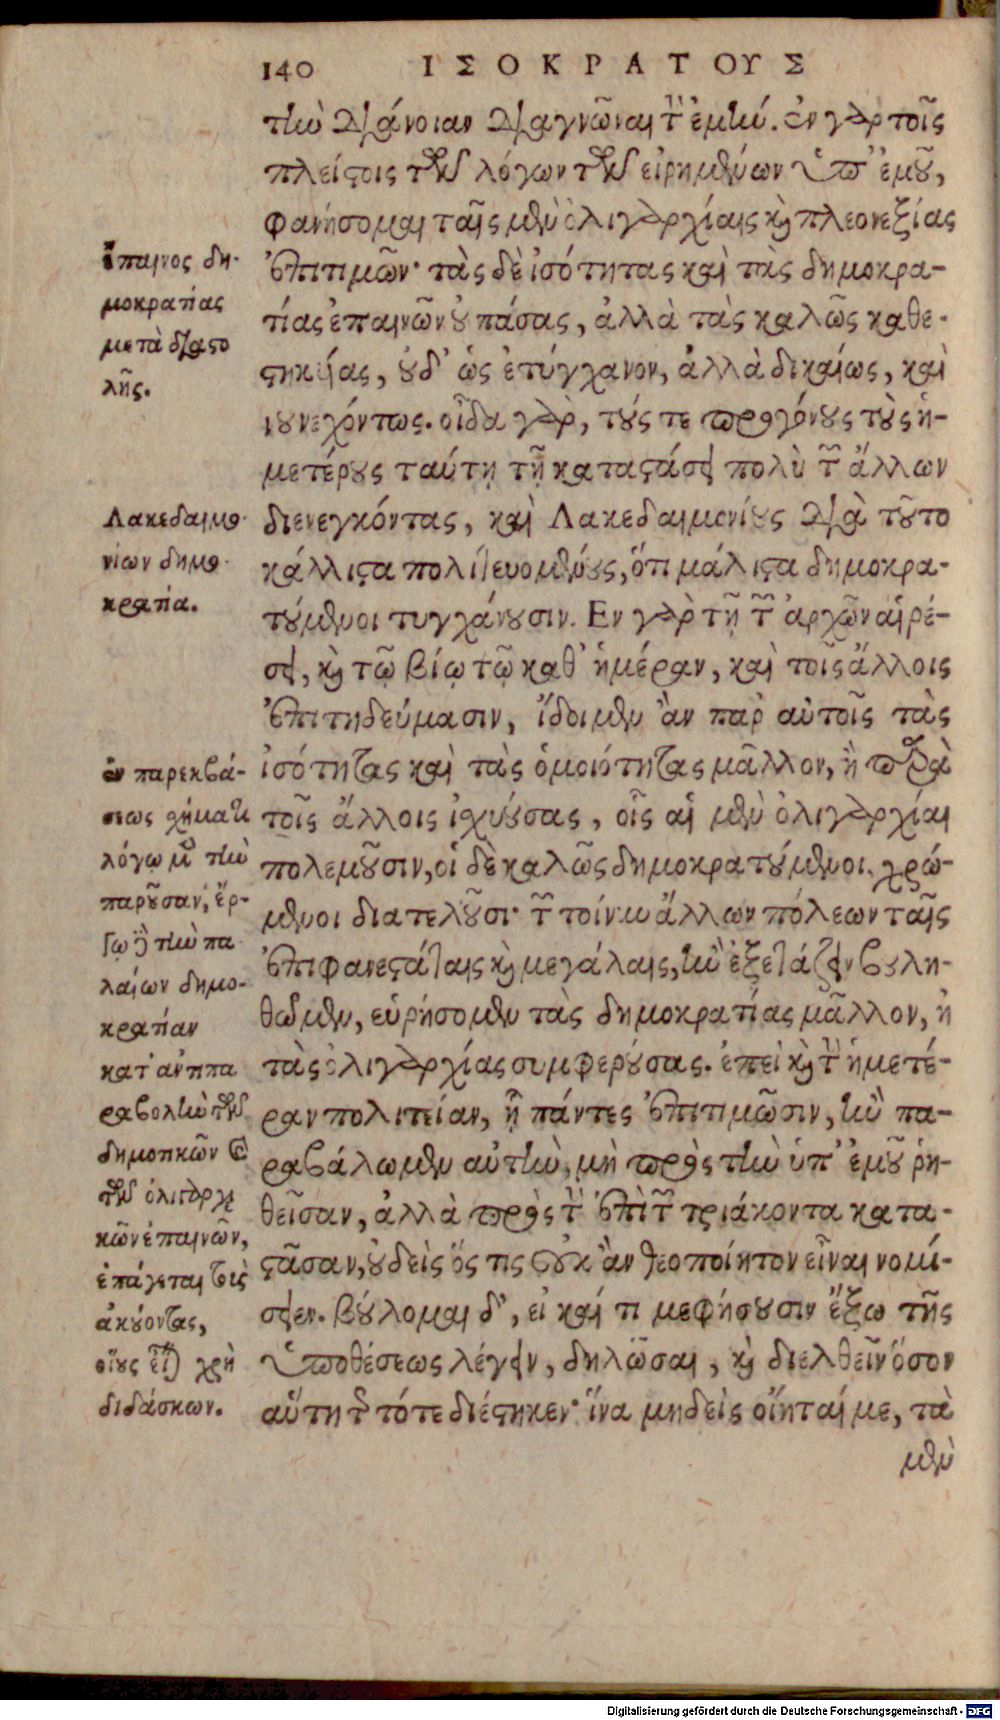 140 ΙΣΟΚΡΑΤΟΥΣ
τὴν διάνοιαν διαγνῶναι τὴν ἐμήν. ἐν γὰρ τοῖς
πλείστοις τῶν λόγων τῶν εἰρημένων ὑπ' ἐμοῦ,
φανήσομαι ταῖς μὲν ὀλιγαρχίαις καὶ πλεονεξίας
ἐπιτιμῶν· τὰς δὲ ἰσότητας καὶ τὰς δημοκρα-
τίας ἐπαινῶν οὐ πάσας, ἀλλὰ τὰς καλῶς καθε-
στηκυίας, οὐδ' ὡς ἐτύγχανον, ἀλλὰ δικαίως, καὶ
νουνεχόντως. οἶδα γὰρ, τούς τε προγόνους τοὺς ἡ-
μετέρους ταύτῃ τῇ καταστάσει πολὺ τῶν ἄλλων
διενεγκόντας, καὶ Λακεδαιμονίους διὰ τοῦτο
κάλλιστα πολιτευομένους, ὅτι μάλιστα δημοκρα-
τούμενοι τυγχάνουσιν. Εν γὰρ τῇ τῶν ἀρχῶν αἱρέ-
σει, καὶ τῷ βίῳ τῷ καθ' ἡμέραν, καὶ τοῖς ἄλλοις
ἐπιτηδεύμασιν, ἴδοιμεν ἂν παρ' αὐτοῖς τὰς
ἰσότητας καὶ τὰς ὁμοιότητας μᾶλλον, ἢ παρὰ
τοῖς ἄλλοις ἰσχυούσας, οἷς αἱ μὲν ὀλιγαρχίαι
πολεμοῦσιν, οἱ δὲ καλῶς δημοκρατούμενοι, χρώ-
μενοι διατελοῦσι· τῶν τοίνυν ἄλλων πόλεων ταῖς
ἐπιφανεστάταις καὶ μεγάλαις, ἢν ἐξετάζειν βουλη-
θῶμεν, εὑρήσομεν τὰς δημοκρατίας μᾶλλον, ἢ
τὰς ὀλιγαρχίας συμφερούσας. ἐπεὶ καὶ τὴν ἡμετέ-
ραν πολιτείαν, ᾗ πάντες ἐπιτιμῶσιν, ἢν πα-
ραβάλωμεν αὐτὴν, μὴ πρὸς τὴν ὑπ' ἐμοῦ ῥη-
θεῖσαν, ἀλλὰ πρὸς τὴν ἐπὶ τῶν τριάκοντα κατα-
στᾶσαν, οὐδεὶς ὅς τις οὐκ ἂν θεοποίητον εἶναι νομί-
σειεν. βούλομαι δ', εἰ καί τι με φήσουσιν ἔξω τῆς
ὑποθέσεως λέγειν, δηλῶσαι, καὶ διελθεῖν ὅσον
αὕτη τῆς τότε διέστηκεν· ἵνα μηδεὶς οἴηταί με, τὰ
μὲν
ἔπαινος δη-
μοκρατίας
μετὰ διαστο
λῆς.
Λακεδαιμο-
νίων δημο-
κρατία.
ἐν παρεκβά-
σεως χήματι
λόγῳ μὲν τὴν
παροῦσαν, ἔρ-
γῳ δὲ τὴν πα
λαίων δημο-
κρατίαν
κατ' ἀντιπα
ραβολὴν τῶν
δημοτικῶν καὶ
τῶν ὀλιγαρχι
κῶν ἐπαινῶν,
ἐπάγεται τοὺς
ἀκούοντας,
οἵους εἶναι χρὴ
διδάσκων.
Digitalisierung gefördert durch die Deutsche Forschungsgemeinschaft - DFG